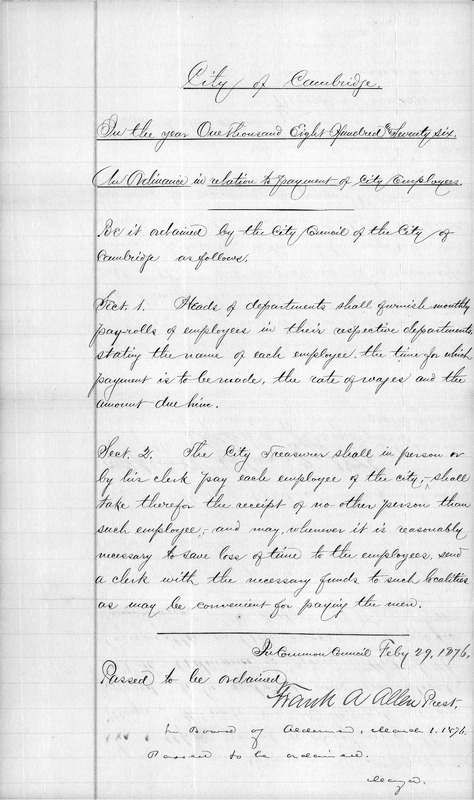 City of Cambridge.
In the year One thousand Eight Hundred & Seventy six.
An Ordinance in relation to payment of City Employees.
Be it ordained by the City Council of the City of
Cambridge as follows.
Sect. 1. Heads of departments shall furnish monthly
payrolls of employees in their respective departments
stating the name of each employee, the time for which
payment is to be made, the rate of wages and the
amount due him.
Sect. 2. The City Treasurer shall in person or
by his clerk pay each employee of the city,- shall
take therefor the receipt of no other person than
such employee,- and may, whenever it is reasonably
necessary to save loss of time to the employees, send
a clerk with the necessary funds to such localities
as may be convenient for paying the men.
In Common Council Feby 29, 1876.
Passed to be ordained
Frank A Allen Prest.
In Board of Aldermen, March 1, 1876.
Passed to be ordained.
Mayor.